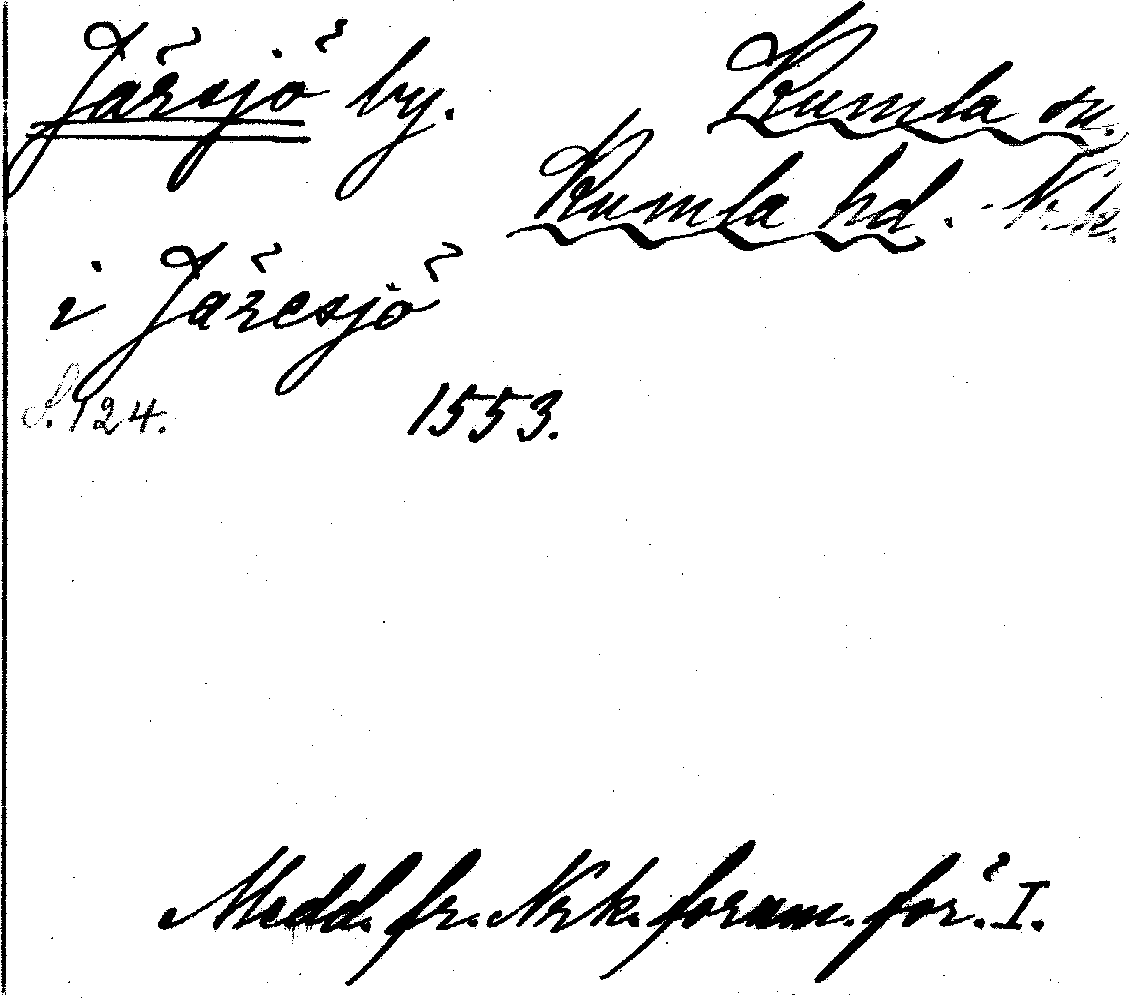 Järsjö by. Kumla sn.
Kumla hd. Nrk.
i Järesjö
S. 124. 1553.
Medd. fr. Nrk. fornm. för. I.